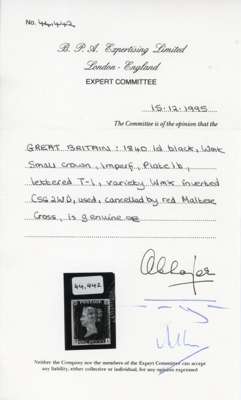 No. 44,442
B. P. A. Expertising Limited
London - England
EXPERT COMMITTEE
15-12-1995
The Committee is of the opinion that the
GREAT BRITAIN: 1840 1d black, Wmk
Small crown, Imperf, Plate 1b,
lettered T-L, variety Wmk inverted
(SG2Wi), used, cancelled by red Maltese
Cross, is genuine
44,442
POSTAGE
Neither the Company nor the members of the Expert Committee can accept
any liability, either collective or individual, for any opinion expressed